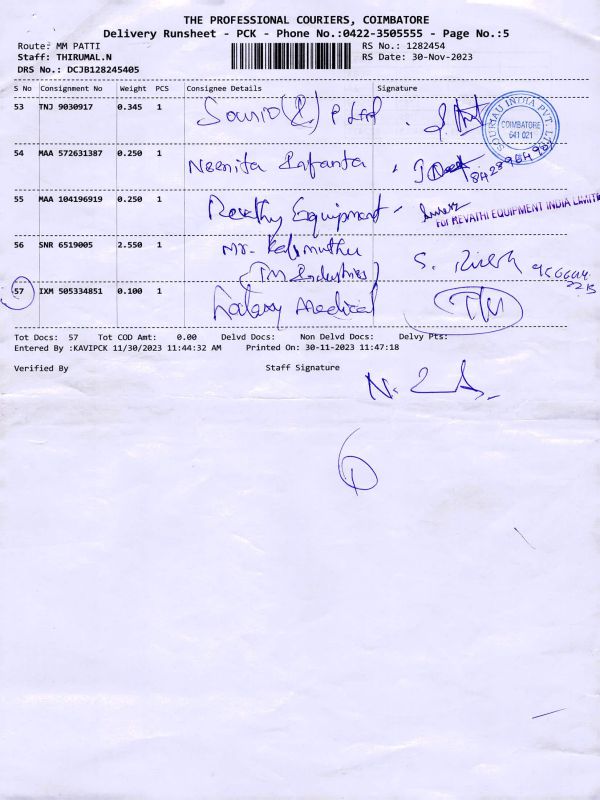 THE PROFESSIONAL COURIERS, COIMBATORE
Delivery Runsheet - PCK - Phone No.:0422-3505555 - Page No.:5
Route: MM PATTI RS No.: 1282454
Staff: THIRUMAL.N RS Date: 30-Nov-2023
DRS No.: DCJB128245405
S No Consignment No Weight PCS Consignee Details Signature
53 TNJ 9030917 0.345 1 P Ltd
COIMBATORE
641 021
54 MAA 572631387 0.250 1 Neenita Infanta
55 MAA 104196919 0.250 1 Revathy Equipment
For REVATHI EQUIPMENT INDIA LIMITE
56 SNR 6519005 2.550 1 Mr. Kalimuthu
(TM Industries)
57 IXM 505334851 0.100 1 Galaxy Medical TM
Tot Docs: 57 Tot COD Amt: 0.00 Delvd Docs: Non Delvd Docs: Delvy Pts:
Entered By :KAVIPCK 11/30/2023 11:44:32 AM Printed On: 30-11-2023 11:47:18
Verified By Staff Signature